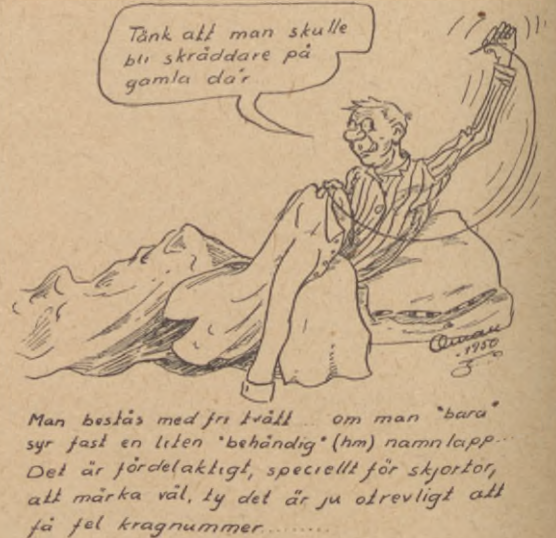 Tänk att man skulle
bli skräddare på
gamla da'r
Öman
-1950
Man bestås med fri tvätt... om man "bara"
syr fast en liten "behändig" (hm) namnlapp...
Det är fördelaktigt, speciellt för skjortor,
att märka väl, ty det är ju otrevligt att
få fel kragnummer.........